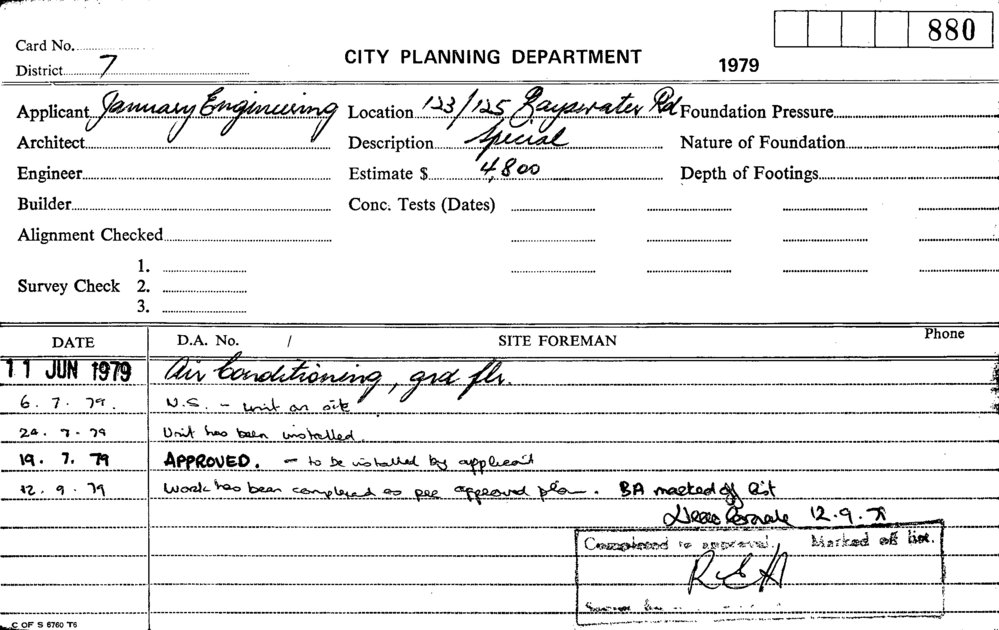 880
Card No.
District 7
CITY PLANNING DEPARTMENT
1979
Applicant January Engineering Location 123/125 Bayswater Rd Foundation Pressure
Architect Description Special Nature of Foundation
Engineer Estimate $ 4,800 Depth of Footings
Builder Conc. Tests (Dates)
Alignment Checked
1.
Survey Check 2.
3.
DATE D.A. No. / SITE FOREMAN Phone
11 JUN 1979 Air Conditioning, grd flr.
6. 7. 79. N.S. - unit on site
24. 7. 79 Unit has been installed.
19. 7. 79 APPROVED. - to be installed by applicant
12. 9. 79 Work has been completed as per approved plan. BA marked off list
12.9.79
Completed to approval. Marked off list.
C OF S 6760 T6